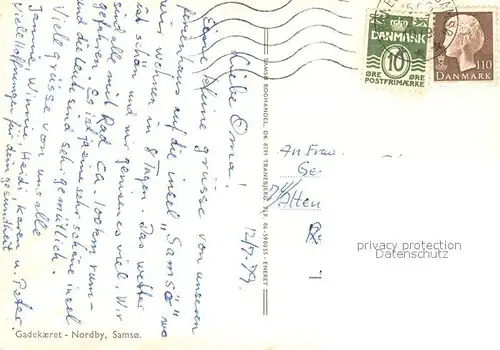 Liebe Oma!
Eine kleine grüsse von unseren
ferienhaus auf die insel „Samsø" wo
wir wohnen in 8 Tagen. Das wetter
ist schön und wir geniessen es viel. Wir
sind alle mit Rad ca. 100 km rum-
gefahren. Es ist gaense sehr schöne insel
und die Leute sind sehr gemütlich.
Viele grüsse von uns alle
Janne, Winnie, Heidi, Karen u. Peter.
viele hoffnungen für dein gesundheit
12/7.79.
An Frau.
Ge
Alten
R
Gadekæret - Nordby, Samsø.
SAMSØ BOGHANDEL, DK 8791 TRANEBJERG, TLF. 06-590055 - ENERET
DANMARK
10
ØRE ØRE
POSTFRIMÆRKE
110
DANMARK
privacy protection
Datenschutz